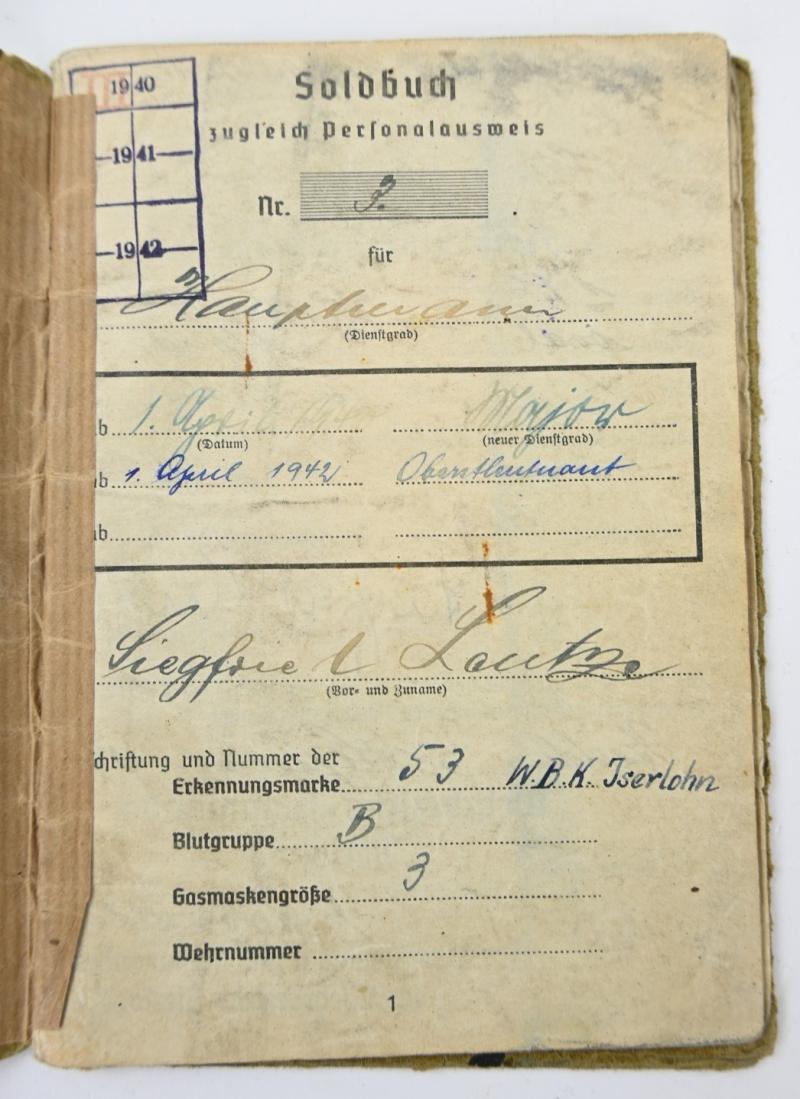 1940
Soldbuch
zugleich Personalausweis
1941
Nr. 3.
1942
für
Hauptmann
(Dienstgrad)
b 1. April Major
(Datum) (neuer Dienstgrad)
ab 1. April 1942 Oberstleutnant
ab
Siegfried Lautze
(Vor- und Zuname)
chriftung und Nummer der
Erkennungsmarke 53 W.B.K. Iserlohn
Blutgruppe B
Gasmaskengröße 3
Wehrnummer
1